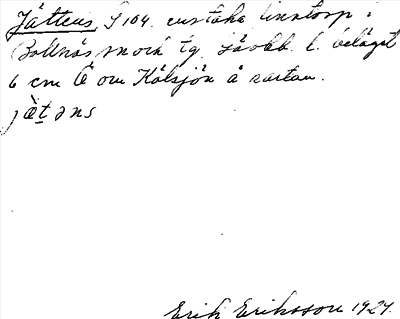 Jättens, S 104. enstaka finntorp i
Bollnäs sock tg. Jävsb. l. beläget
6 cm Ö om Kålsjön å kartan.
jæ̀t̠əns
Erik Eriksson 1924.